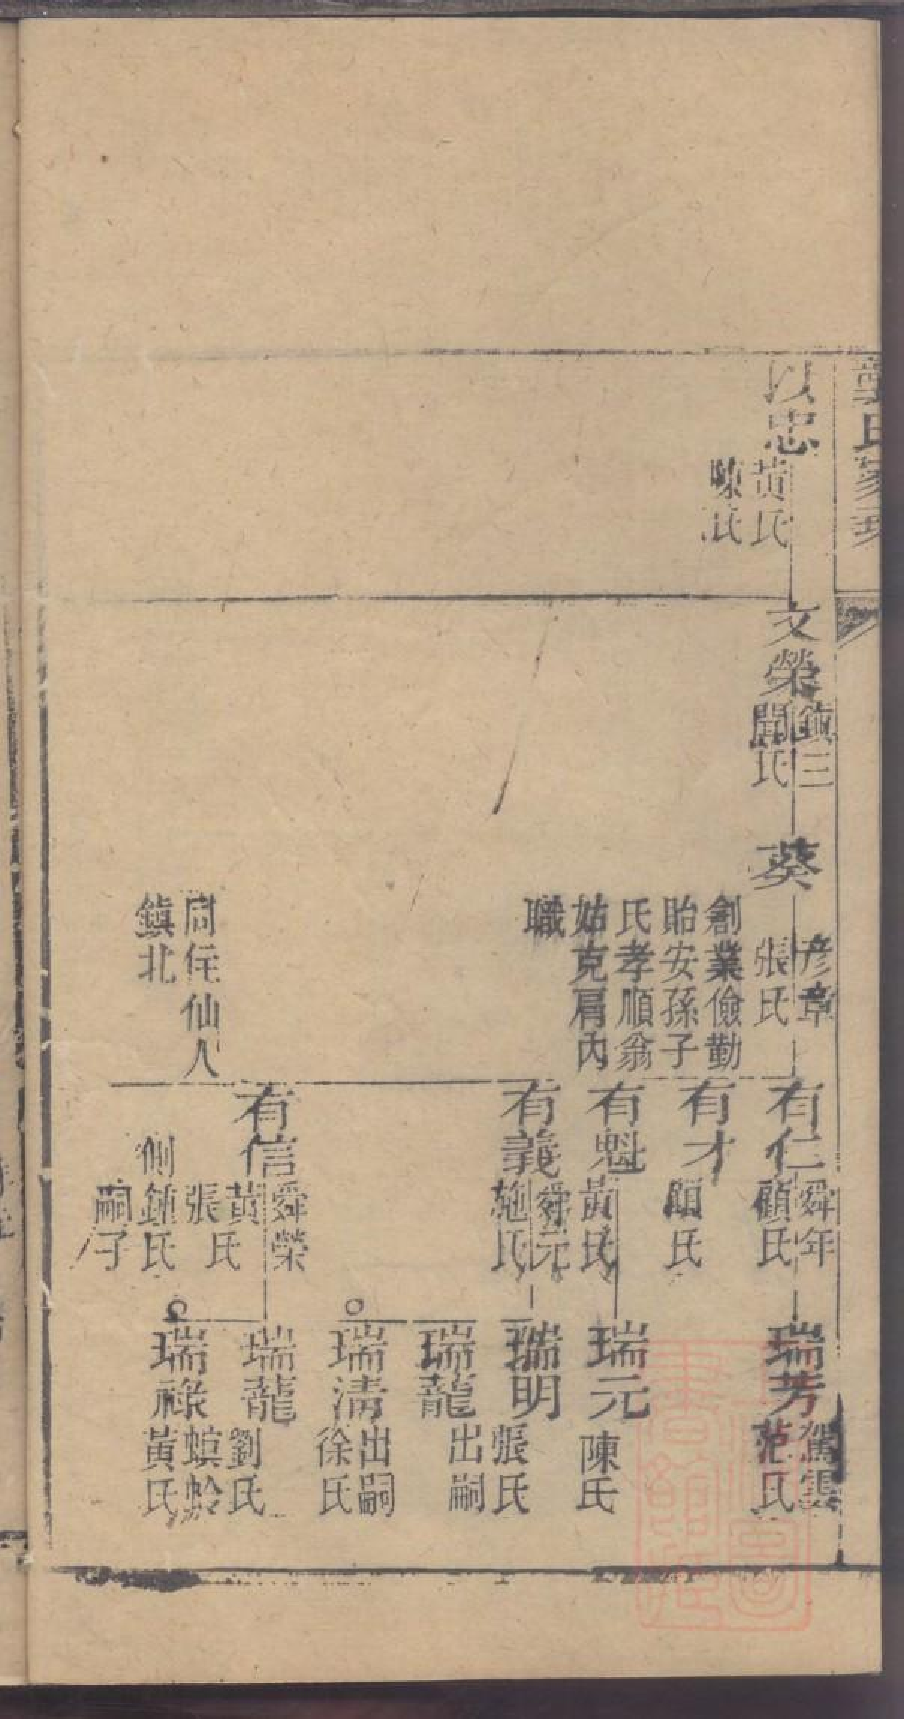 龔氏家乘
以忠
黃氏
陳氏
文榮
鎮三
氏
葵
彦章
張氏
創業儉勤
貽安孫子
氏孝順翁
姑克肩內
職
周住仙人
鎮北
有仁
舜年
顧氏
有才
顧氏
有魁
黃氏
有義
舜元
施氏
有信
舜榮
黃氏
張氏
側鍾氏
嗣子
瑞芳
駕雲
范氏
瑞元
陳氏
瑞明
張氏
瑞龍
出嗣
瑞清
出嗣
徐氏
瑞龍
劉氏
瑞祿
螟蛉
黃氏